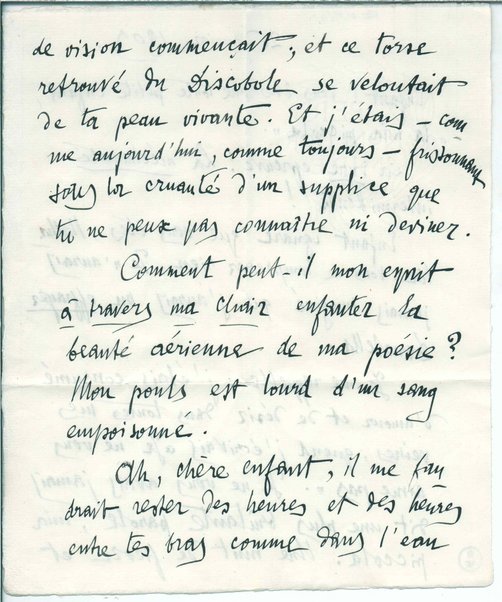 de vision commençait ; et ce torse
retrouvé du Discobole se veloutait
de ta peau vivante. Et j'étais – com
me aujourd'hui, comme toujours – frissonnant
sous la cruauté d'un supplice que
tu ne peux pas connaître ni deviner.
Comment peut-il mon esprit
à travers ma chair enfanter la
beauté aérienne de ma poésie ?
Mon pouls est lourd d'un sang
empoisonné.
Ah, chère enfant, il me fau
drait rester des heures et des heures
entre tes bras comme dans l'eau